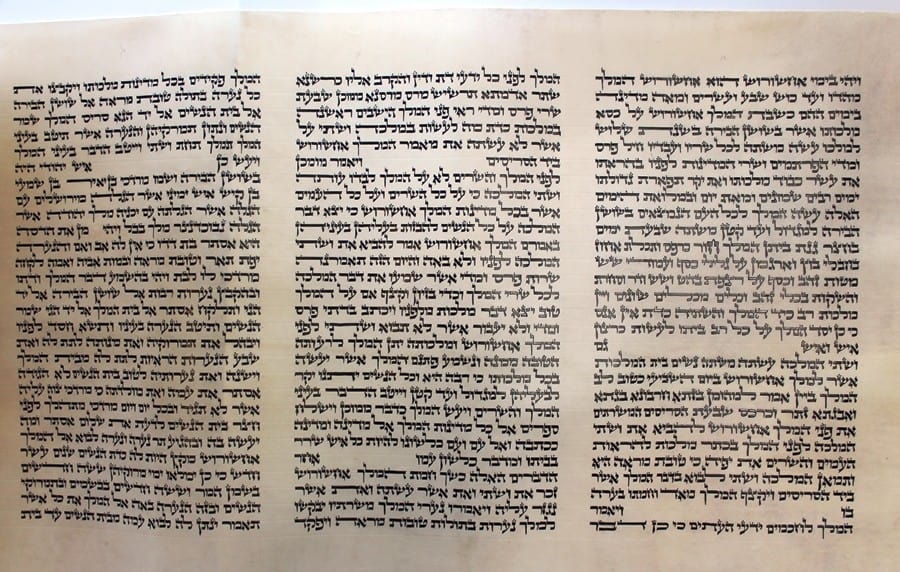 ויהי בימי אחשורוש הוא אחשורוש המלך
מהדו ועד כוש שבע ועשרים ומאה מדינה
בימים ההם כשבת המלך אחשורוש על כסא
מלכותו אשר בשושן הבירה בשנת שלוש
למלכו עשה משתה לכל שריו ועבדיו חיל פרס
ומדי הפרתמים ושרי המדינות לפניו בהראתו
את עשר כבוד מלכותו ואת יקר תפארת גדולתו
ימים רבים שמונים ומאת יום ובמלואת הימים
האלה עשה המלך לכל העם הנמצאים בשושן
הבירה למגדול ועד קטן משתה שבעת ימים
בחצר גנת ביתן המלך חור כרפס ותכלת אחוז
בחבלי בוץ וארגמן על גלילי כסף ועמודי שש
מטות זהב וכסף על רצפת בהט ושש ודר וסחרת
והשקות בכלי זהב וכלים מכלים שונים ויין
מלכות רב כיד המלך והשתיה כדת אין אנס
כי כן יסד המלך על כל רב ביתו לעשות כרצון
איש ואיש גם
ושתי המלכה עשתה משתה נשים בית המלכות
אשר למלך אחשורוש ביום השביעי כטוב לב
המלך ביין אמר למהומן בזתא חרבונא בגתא
ואבגתא זתר וכרכס שבעת הסריסים המשרתים
את פני המלך אחשורוש להביא את ושתי
המלכה לפני המלך בכתר מלכות להראות
העמים והשרים את יפיה כי טובת מראה היא
ותמאן המלכה ושתי לבוא בדבר המלך אשר
ביד הסריסים ויקצף המלך מאד וחמתו בערה
בו ויאמר
המלך לחכמים ידעי העתים כי כן דבר
המלך לפני כל ידעי דת ודין והקרב אליו כרשנא
שתר אדמתא תרשיש מרס מרסנא ממוכן שבעת
שרי פרס ומדי ראי פני המלך הישבים ראשנה
במלכות כדת מה לעשות במלכה ושתי על
אשר לא עשתה את מאמר המלך אחשורוש
ביד הסריסים ויאמר מומכן
לפני המלך והשרים לא על המלך לבדו עותה
ושתי המלכה כי על כל השרים ועל כל העמים
אשר בכל מדינות המלך אחשורוש כי יצא דבר
המלכה על כל הנשים להבזות בעליהן בעיניהן
באמרם המלך אחשורוש אמר להביא את ושתי
המלכה לפניו ולא באה והיום הזה תאמרנה
שרות פרס ומדי אשר שמעו את דבר המלכה
לכל שרי המלך וכדי בזיון וקצף אם על המלך
טוב יצא דבר מלכות מלפניו ויכתב בדתי פרס
ומדי ולא יעבור אשר לא תבוא ושתי לפני
המלך אחשורוש ומלכותה יתן המלך לרעותה
הטובה ממנה ונשמע פתגם המלך אשר יעשה
בכל מלכותו כי רבה היא וכל הנשים יתנו יקר
לבעליהן למגדול ועד קטן וייטב הדבר בעיני
המלך והשרים ויעש המלך כדבר ממוכן וישלח
ספרים אל כל מדינות המלך אל מדינה ומדינה
ככתבה ואל עם ועם כלשונו להיות כל איש שרר
בביתו ומדבר כלשון עמו אחר
הדברים האלה כשך חמת המלך אחשורוש
זכר את ושתי ואת אשר עשתה ואת אשר
נגזר עליה ויאמרו נערי המלך משרתיו יבקשו
למלך נערות בתולות טובות מראה ויפקד
המלך פקידים בכל מדינות מלכותו ויקבצו את
כל נערה בתולה טובת מראה אל שושן הבירה
אל בית הנשים אל יד הגא סריס המלך שמר
הנשים ונתון תמרקיהן והנערה אשר תיטב בעיני
המלך תמלך תחת ושתי וייטב הדבר בעיני המלך
ויעש כן איש יהודי היה
בשושן הבירה ושמו מרדכי בן יאיר בן שמעי
בן קיש איש ימיני אשר הגלה מירושלים עם
הגלה אשר הגלתה עם יכניה מלך יהודה אשר
הגלה נבוכדנצר מלך בבל ויהי אמן את הדסה
היא אסתר בת דדו כי אין לה אב ואם והנערה
יפת תאר וטובת מראה ובמות אביה ואמה לקחה
מרדכי לו לבת ויהי בהשמע דבר המלך ודתו
ובהקבץ נערות רבות אל שושן הבירה אל יד
הגי ותלקח אסתר אל בית המלך אל יד הגי שמר
הנשים ותיטב הנערה בעיניו ותשא חסד לפניו
ויבהל את תמרוקיה ואת מנותה לתת לה ואת
שבע הנערות הראיות לתת לה מבית המלך
וישנה ואת נערותיה לטוב בית הנשים לא הגידה
אסתר את עמה ואת מולדתה כי מרדכי צוה עליה
אשר לא תגיד ובכל יום ויום מרדכי מתהלך לפני
חצר בית הנשים לדעת את שלום אסתר ומה
יעשה בה ובהגיע תר נערה ונערה לבוא אל המלך
אחשורוש מקץ היות לה כדת הנשים שנים עשר
חדש כי כן ימלאו ימי מרוקיהן ששה חדשים
בשמן המר וששה חדשים בבשמים ובתמרוקי
הנשים ובזה הנערה באה אל המלך את כל אשר
תאמר ינתן לה לבוא עמה מבית הנשים עד בית